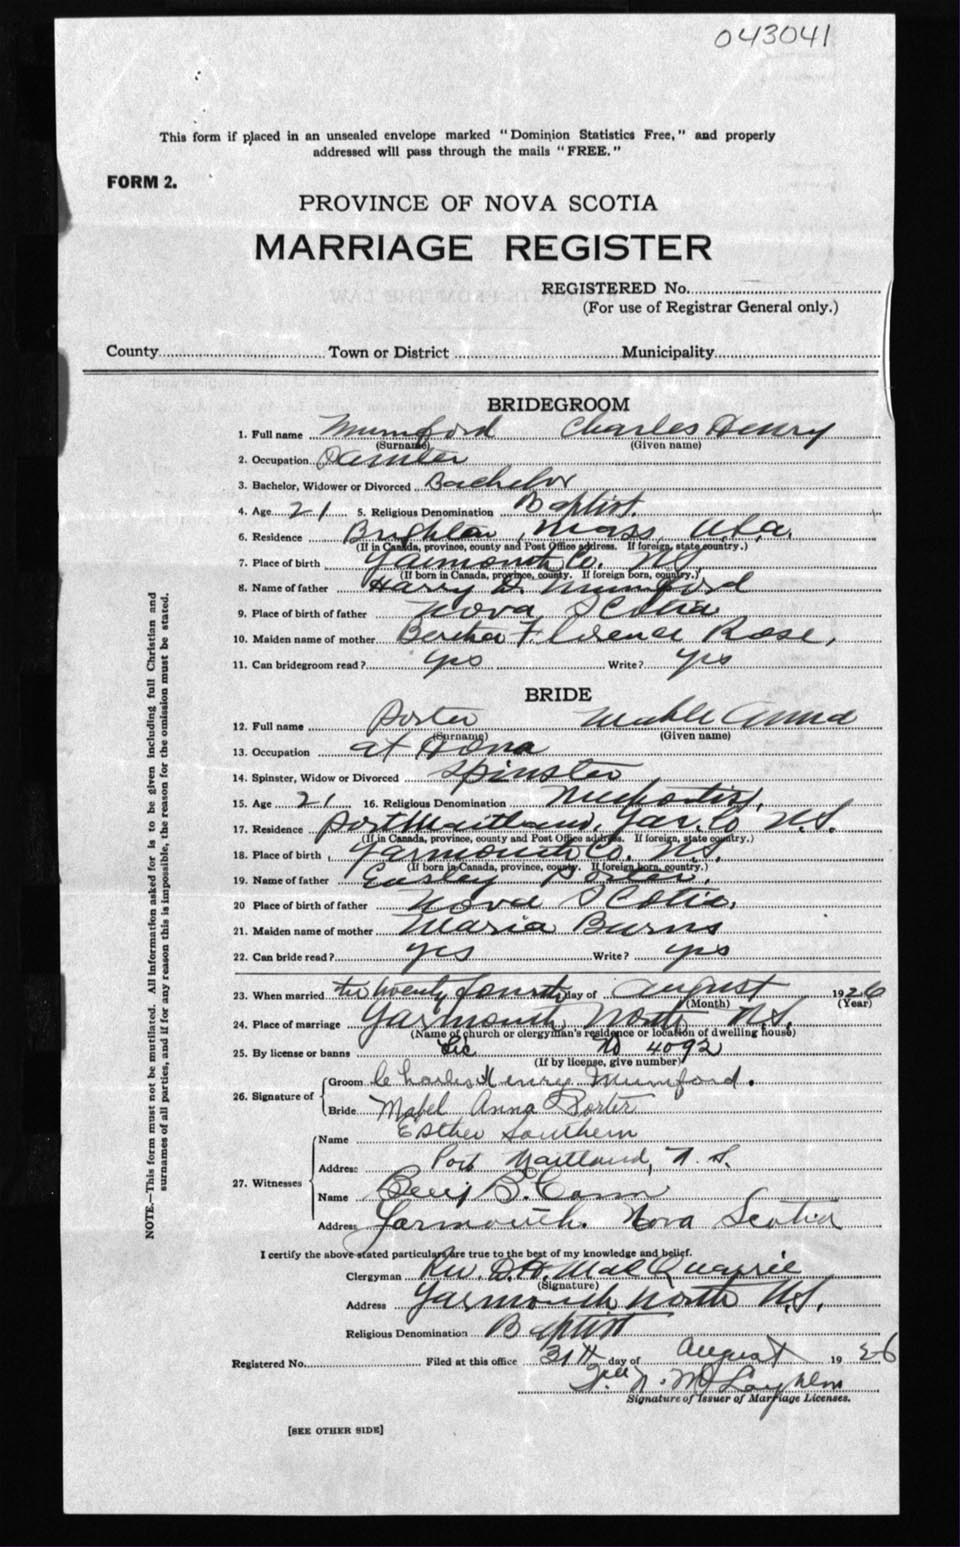 043041
This form if placed in an unsealed envelope marked "Dominion Statistics Free," and properly
addressed will pass through the mails "FREE."
FORM 2.
PROVINCE OF NOVA SCOTIA
MARRIAGE REGISTER
REGISTERED No.
(For use of Registrar General only.)
County Town or District Municipality
BRIDEGROOM
1. Full name Mumford Charles Henry
(Surname) (Given name)
2. Occupation Painter
3. Bachelor, Widower or Divorced Bachelor
4. Age 21 5. Religious Denomination Baptist.
6. Residence Brighton, Mass, U.S.A.
(If in Canada, province, county and Post Office address. If foreign, state country.)
7. Place of birth Yarmouth Co. N.S.
(If born in Canada, province, county. If foreign born, country.)
8. Name of father Harry D. Mumford
9. Place of birth of father Nova Scotia
10. Maiden name of mother Bertha Florence Rose,
11. Can bridegroom read? yes Write? yes
BRIDE
12. Full name Porter Anna
(Surname) (Given name)
13. Occupation at Home
14. Spinster, Widow or Divorced Spinster
15. Age 21 16. Religious Denomination
17. Residence Port Maitland, Yar. Co N.S.
(If in Canada, province, county and Post Office address. If foreign, state country.)
18. Place of birth Yarmouth Co. N.S.
(If born in Canada, province, county. If foreign born, country.)
19. Name of father Porter,
20 Place of birth of father Nova Scotia,
21. Maiden name of mother Maria Burns
22. Can bride read? yes Write? yes
23. When married the twenty fourth day of August 1926
(Month) (Year)
24. Place of marriage Yarmouth North N.S.
(Name of church or clergyman's residence or location of dwelling house)
25. By license or banns Lic No 4092
(If by license, give number)
26. Signature of
Groom Charles Henry Mumford.
Bride Mabel Anna Porter
27. Witnesses
Name Esther Southern
Address Port Maitland, N.S.
Name Benj B. Cann
Address Yarmouth. Nova Scotia
I certify the above stated particulars are true to the best of my knowledge and belief.
Clergyman Rev. D.H. MacQuarrie
(Signature)
Address Yarmouth North N.S.
Religious Denomination Baptist
Registered No. Filed at this office 31st day of August 1926
Signature of Issuer of Marriage Licenses.
[SEE OTHER SIDE]
NOTE.—This form must not be mutilated. All information asked for is to be given including full Christian and
surnames of all parties, and if for any reason this is impossible, the reason for the omission must be stated.